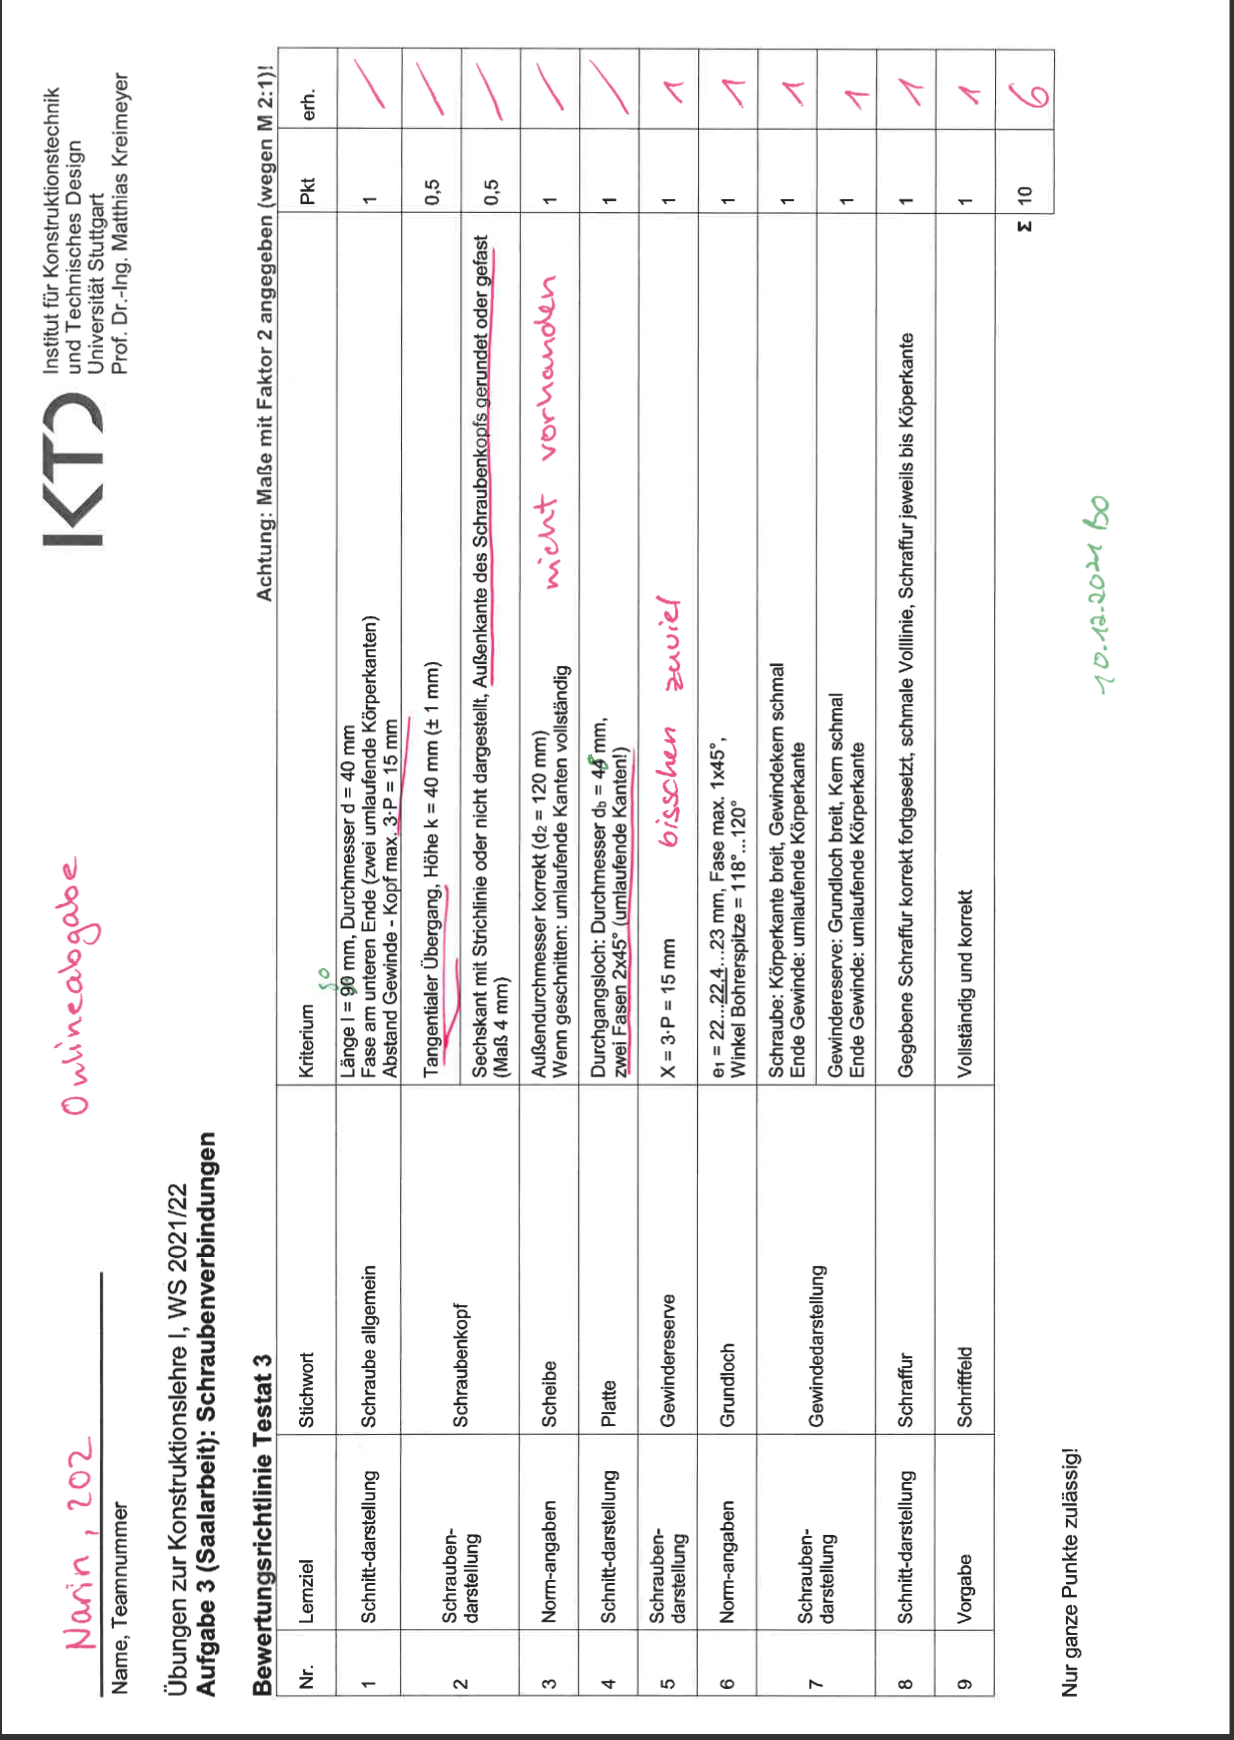 Narin, 202
Onlineabgabe
Name, Teamnummer
IKTD
Institut für Konstruktionstechnik
und Technisches Design
Universität Stuttgart
Prof. Dr.-Ing. Matthias Kreimeyer
Übungen zur Konstruktionslehre I, WS 2021/22
Aufgabe 3 (Saalarbeit): Schraubenverbindungen
Bewertungsrichtlinie Testat 3
Achtung: Maße mit Faktor 2 angegeben (wegen M 2:1)!
Nr. Lernziel Stichwort Kriterium Pkt erh.
1 Schnitt-darstellung Schraube allgemein
80
Länge l = 90 mm, Durchmesser d = 40 mm
Fase am unteren Ende (zwei umlaufende Körperkanten)
Abstand Gewinde - Kopf max. 3·P = 15 mm
1 /
2 Schrauben-
darstellung
Schraubenkopf
Tangentialer Übergang, Höhe k = 40 mm (± 1 mm)
0,5 /
Sechskant mit Strichlinie oder nicht dargestellt, Außenkante des Schraubenkopfs gerundet oder gefast
(Maß 4 mm)
0,5 /
3 Norm-angaben Scheibe
Außendurchmesser korrekt (d2 = 120 mm)
Wenn geschnitten: umlaufende Kanten vollständig
nicht vorhanden
1 /
4 Schnitt-darstellung Platte
Durchgangsloch: Durchmesser db = 48 mm,
zwei Fasen 2x45° (umlaufende Kanten!)
1 /
5 Schrauben-
darstellung
Gewindereserve
X = 3·P = 15 mm
bisschen zuviel
1 1
6 Norm-angaben Grundloch
e1 = 22...22,4...23 mm, Fase max. 1x45°,
Winkel Bohrerspitze = 118°...120°
1 1
7 Schrauben-
darstellung
Gewindedarstellung
Schraube: Körperkante breit, Gewindekern schmal
Ende Gewinde: umlaufende Körperkante
1 1
Gewindereserve: Grundloch breit, Kern schmal
Ende Gewinde: umlaufende Körperkante
1 1
8 Schnitt-darstellung Schraffur
Gegebene Schraffur korrekt fortgesetzt, schmale Volllinie, Schraffur jeweils bis Köperkante
1 1
9 Vorgabe Schriftfeld
Vollständig und korrekt
1 1
Σ 10 6
Nur ganze Punkte zulässig!
10.12.2021 BO